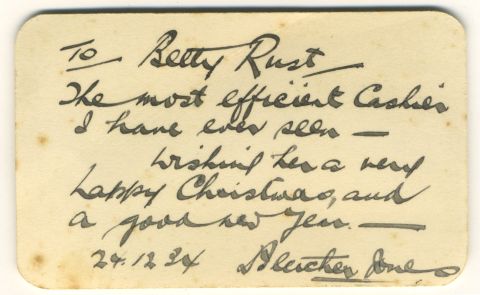 To Betty Rust
The most efficient Cashier
I have ever seen —
Wishing her a very
happy Christmas, and
a good new Year. —
24.12.34 Fletcher Jones